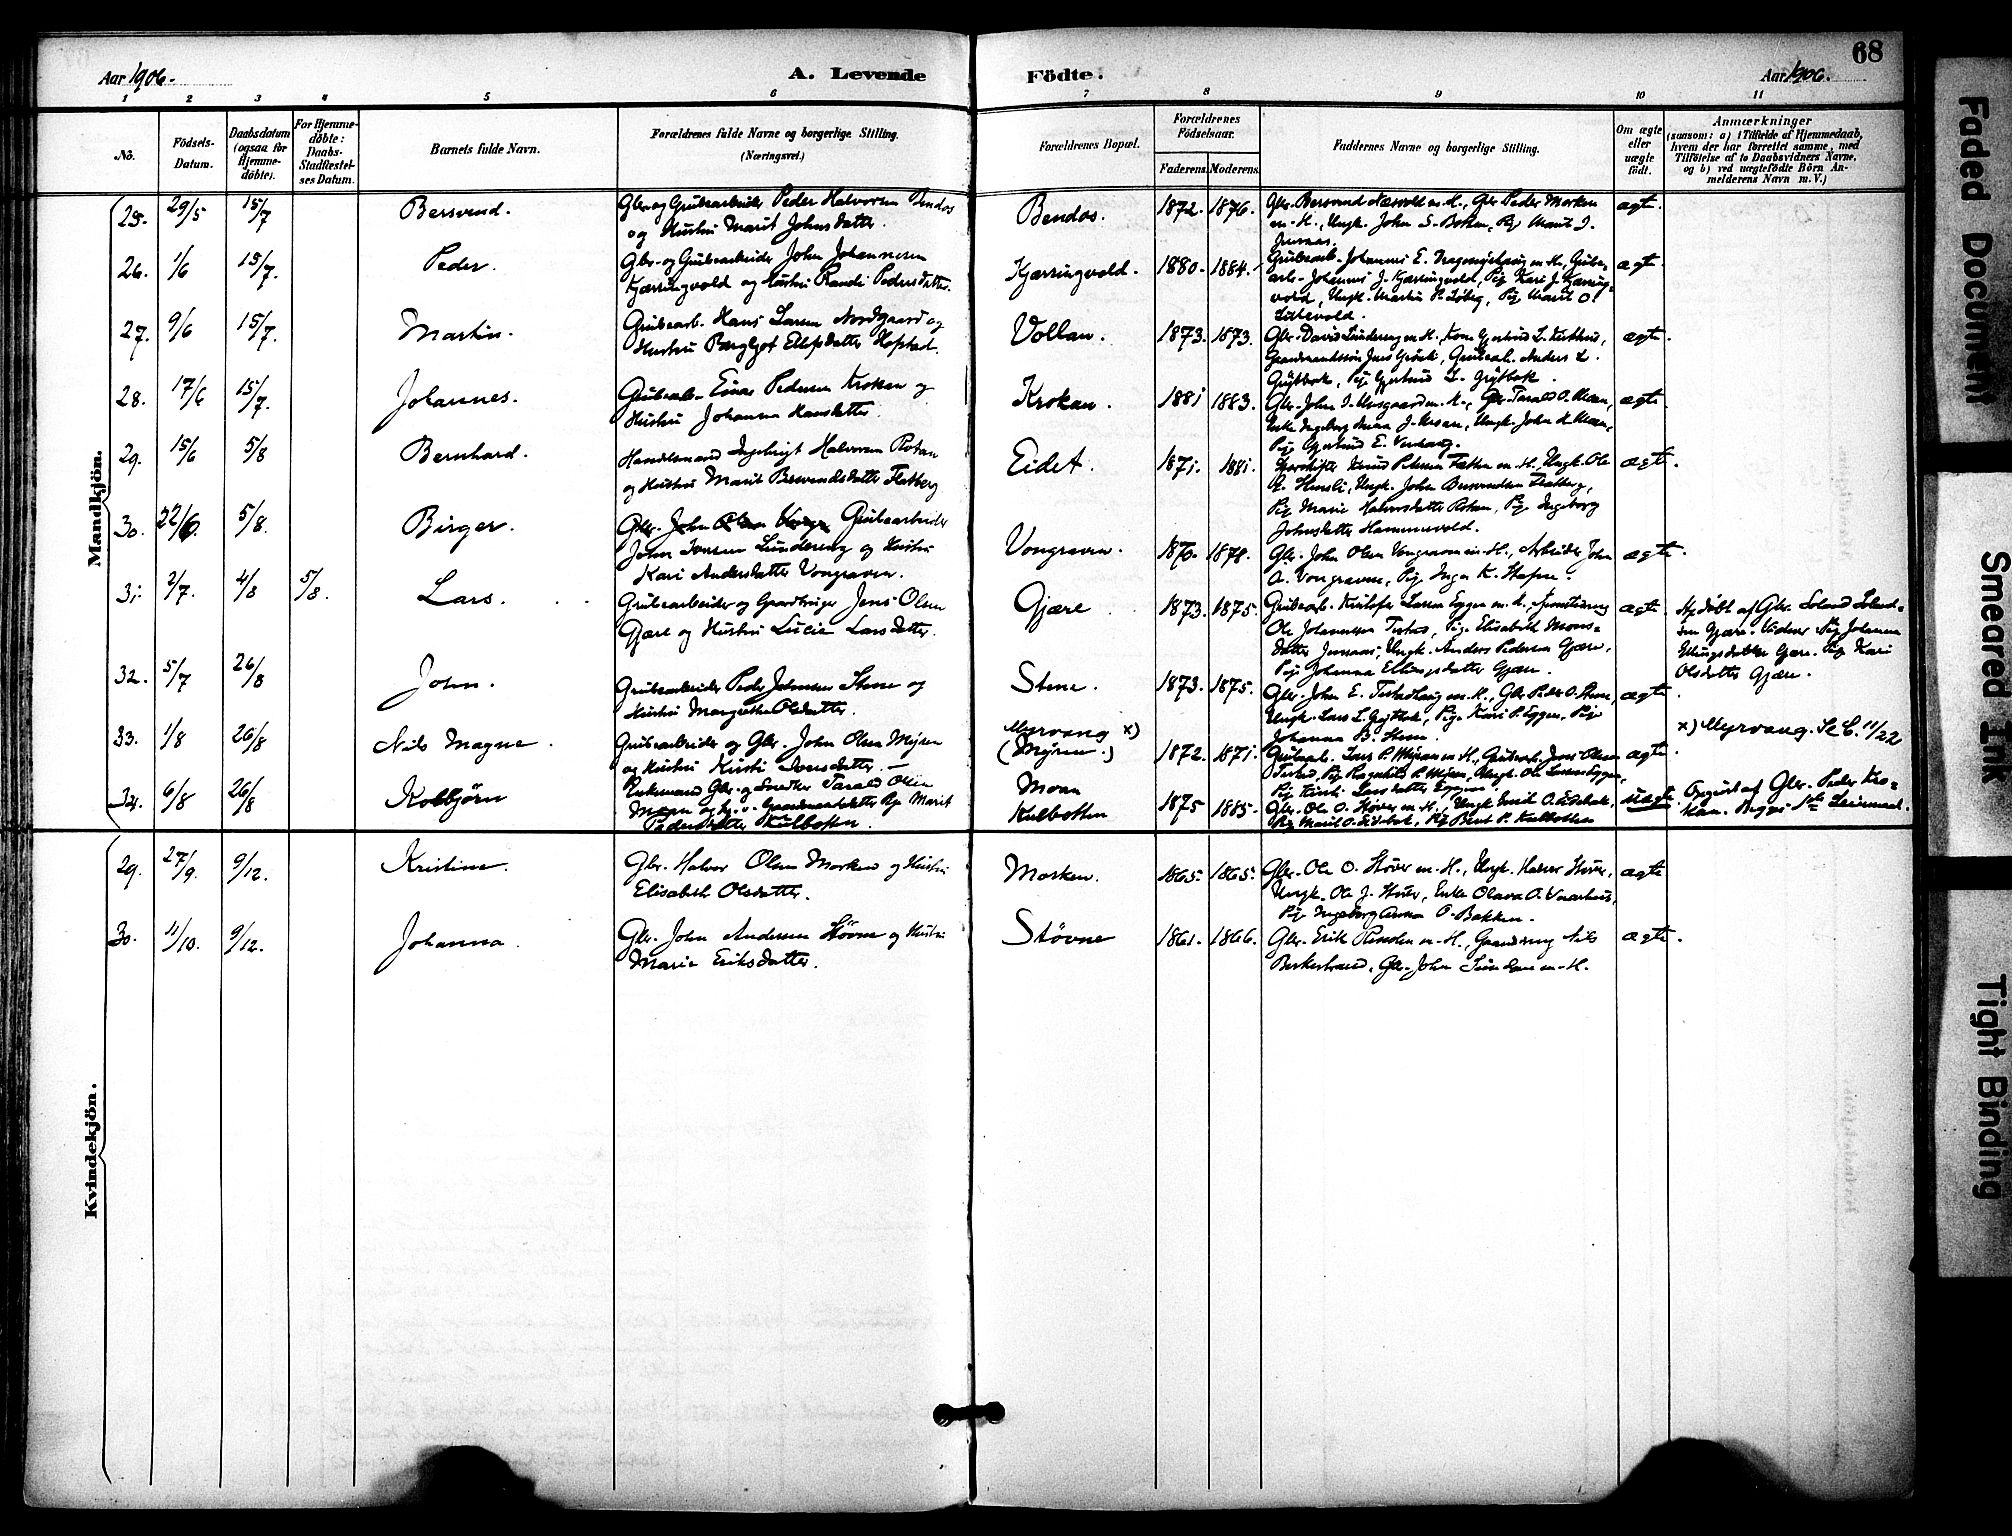 68
Aar 1906.
A. Levende
Födte.
Aar 1906.
1 2 3 4 5 6 7 8 9 10 11
No.
Födsels-
Datum.
Daabsdatum
(ogsaa for
Hjemme-
döbte).
For Hjemme-
döbte:
Daabs-
Stadfæstel-
ses Datum.
Barnets fulde Navn.
Forældrenes fulde Navne og borgerlige Stilling.
(Næringsvei.)
Forældrenes Bopæl.
Forældrenes
Födselsaar.
Faderens.
Moderens.
Faddernes Navne og borgerlige Stilling.
Om ægte
eller
uægte
födt.
Anmærkninger
(saasom: a) i Tilfælde af Hjemmedaab,
hvem der har forrettet samme, med
Tilföielse af to Daabsvidners Navne,
og b) ved uægtefödte Börn An-
melderens Navn m. V.)
Mandkjön.
25. 29/5 15/7 Bersvend.
Gbr. og Grubearbeider Peder Halvorsen Bendos
og Hustru Marit Johnsdatter.
Bendos. 1872. 1876.
Gbr. Bersvend Næsvold m. H., Gbr. Peder Morken
m. H., Ungk. John S. Boken, Pij. Marit J.
ægte.
26. 1/6 15/7. Peder.
Gbr. og Grubearbeider John Johannesen
Kjærringvold og Hustru Randi Pedersdatter.
Kjærringvold. 1880. 1884.
Grubearb. Johannes E.
m. H., Grube-
arb. Johannes J. Kjærringvold, Pij. Kari J. Kjærring-
vold, Ungk. Martin P. Löberg, Pij. Marit O.
ægte.
27. 9/6 15/7. Martin.
Grubearb. Hans Larsen Nordgaard og
Hustru Bergljot Ellefsdatter Hofstad.
Vollan. 1873. 1873.
Gbr. David Lundereng m. H., Kone Gjertrud L.
Gaardmandssön Jens Grönli, Grubearb. Anders L.
Grytbak, Pij. Gjertrud L. Grytbak.
ægte.
28. 17/6 15/7. Johannes.
Grubearb. Einar Pedersen Krokan og
Hustru Johanna Hansdatter.
Krokan. 1881 1883.
Gbr. John I. Unsgaard m. H., Gbr. Tarald O. Moan,
Enke Ingeborg Anna J. Moan, Ungk. John H. Moan,
Pij. Gjertrud E.
ægte.
29. 15/6 5/8 Bernhard.
Handelsmand Ingebrigt Halvorsen Rotan
og Hustru Marit Bersvendsdatter Flatberg
Eidet. 1871. 1881.
Knud Petersen
m. H., Ungk. Ole
Ungk. John Bersvendsen Flatberg,
Pij. Marie Halvorsdatter Rotan, Pij. Ingeborg
Johnsdatter Hammervold.
ægte.
30. 22/6 5/8. Birger.
Gbr. John Olsen
Grubearbeider
John Iversen Lundereng og Hustru
Kari Andersdatter Vongraven.
Vongraven. 1870. 1878.
Gbr. John Olsen Vongraven m. H., Arbeider John
A. Vongraven, Pij. Inga K.
ægte.
31. 2/7. 4/8 5/8. Lars.
Grubearbeider og Gaardbruger Jens Olsen
Gjære og Hustru Lucie Larsdatter.
Gjære 1873. 1875.
Grubearb. Kristofer Larsen Eggen m. H.,
Ole Johannesen
Pij. Elisabeth Mons-
datter Jensaas, Ungk. Anders Pedersen Gjære,
Pij. Johanna Ellingsdatter Gjære.
ægte.
Hj. döbt af Gbr. Erland Erland-
sen Gjære. Vidner Pij. Johanna
Ellingsdatter Gjære. Pij. Kari
Olsdatter Gjære.
32. 5/7 26/8 John.
Grubearbeider Peder Johnsen Stene og
Hustru Margrethe Olsdatter.
Stene. 1873. 1875.
Gbr. John E.
m. H., Gbr. Peder O. Stene,
Ungk. Lars L. Grytbak, Pij. Kari P. Eggen, Pij.
Johanna B.
ægte.
33. 1/8 26/8 Nils Magne.
Grubearbeider og Gbr. John Olsen Myren
og Hustru Kirsti Iversdatter.
Myrvang x)
(Myren.) 1872. 1871.
Grubearb. Lars P. Myran m. H., Grubearb. Jens Olsen
Pij. Ragnhild P. Myren, Ungk. Ole Larsen Eggen,
Pij. Kirsti Larsdatter Eggen.
ægte.
x) Myrvang.
11/22
34. 6/8 26/8 Kolbjörn
Enkemand Gbr. og Snedker Tarald Olsen
Moan og
Gaardmandsdatter Pij. Marit
Pedersdatter Kulbotten.
Moan
Kulbotten 1875 1885.
Gbr. Ole O. Stöver m. H., Ungk. Emil O.
Pij. Marit O.
Pij. Berit P. Kulbotten
uægte.
Opgivet af Gbr. Peder Kro-
kan. Begges 1ste Leiermaal.
Kvindekjön.
29. 27/9. 9/12. Kristine.
Gbr. Halvor Olsen Morken og Hustru
Elisabeth Olsdatter.
Morken. 1865. 1865.
Gbr. Ole O. Stöver m. H., Ungk. Halvor Stöver,
Ungk. Ole J. Stöver, Enke Olava A.
Pij. Ingeborg Anna O. Bakken.
ægte
30. 11/10. 9/12. Johanna.
Gbr. John Andersen Stövne og Hustru
Marie Eriksdatter.
Stövne 1861. 1866.
Gbr. Erik
m. H., Gaardmand Nils
Berkestrand, Gbr. John
m. H.
ægte.
Faded Document
Smeared Ink
Tight Binding